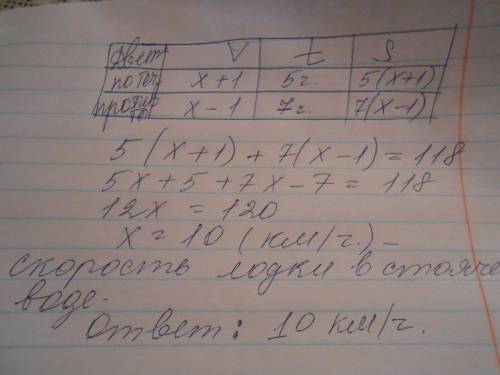 V t S
по теч x+1 5ч. 5(x+1)
против x-1 7г. 7(x-1)
5(x+1)+7(x-1)=118
5x+5+7x-7=118
12x=120
x=10 (км/г.) -
скорость лодки в стояче
воде.
Ответ: 10 км/г.